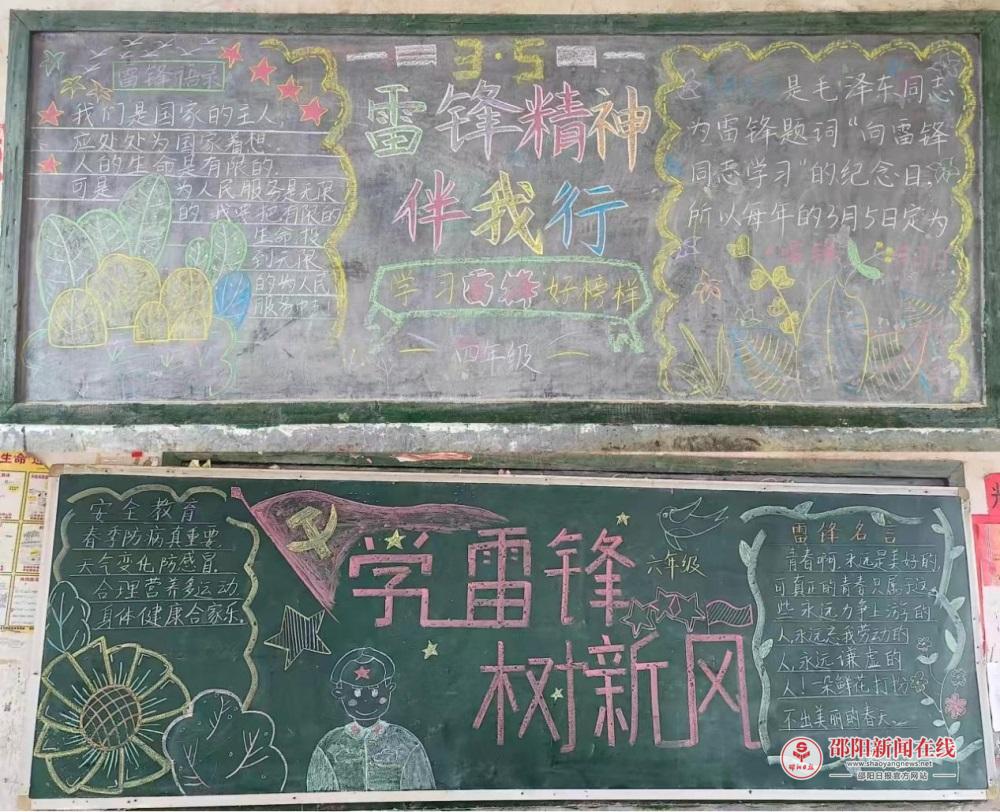 雷锋语录
我们是国家的主人,
应处处为国家着想.
人的生命是有限的.
可是 为人民服务是无限
的.我要把有限的
生命.投
到无限
的为人民
服务中去
3·5
雷锋精神
伴我行
学习雷锋好榜样
四年级
是毛泽东同志
为雷锋题词“向雷锋
同志学习”的纪念日,
所以每年的3月5日定为
安全教育
春季防病真重要,
天气变化防感冒,
合理营养多运动
身体健康合家乐.
学雷锋
六年级
树新风
雷锋名言
青春啊,永远是美好的,
可真正的青春只属于这
些永远力争上游的
人,永远忘我劳动的
人,永远谦虚的
人!一朵鲜花打扮
不出美丽的春天。
邵阳日报
邵阳新闻在线
www.shaoyangnews.net
邵阳日报官方网站